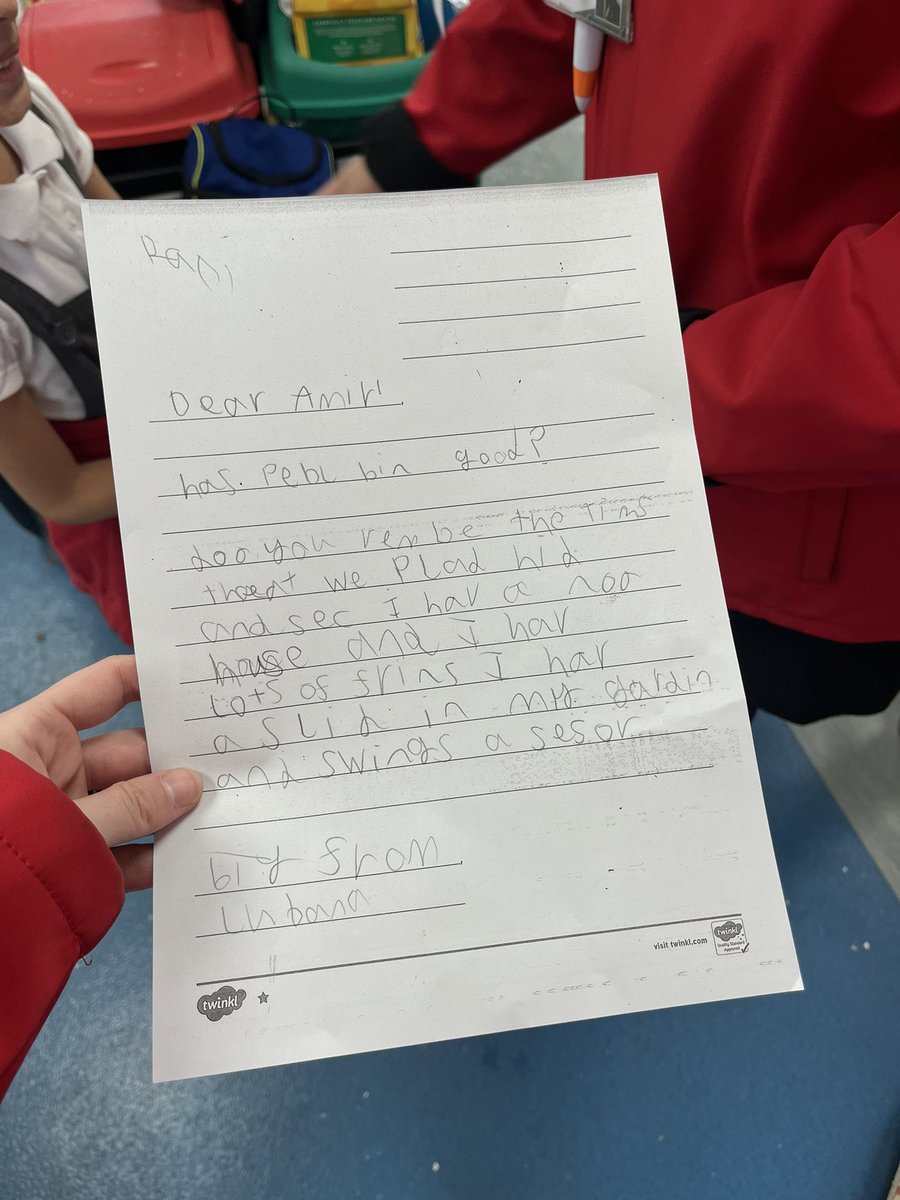 Rani
Dear Amir
has. Pebl bin good?
doo you rembe the tims
threat we Plad hid
and sec I hav a noo
house and I hav
Lots of frins I hav
a slid in my gardin
and swings a sesor
biy from
Lubana
visit twinkl.com
twinkl
Quality Standard
Approved
twinkl